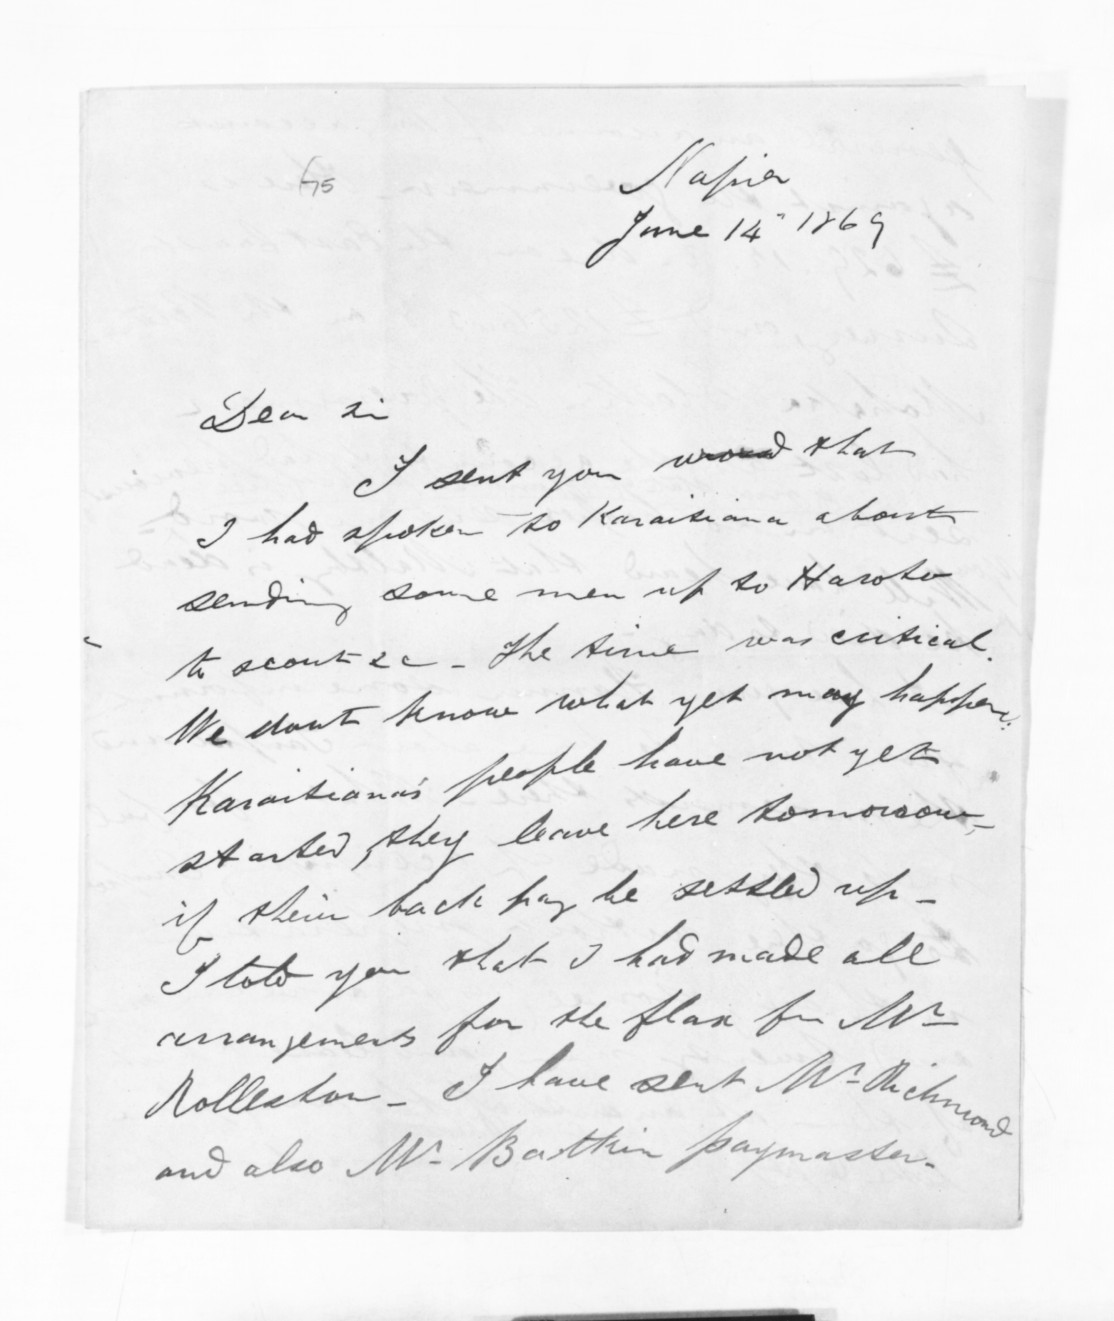 75
Napier
June 14" 1869
Dear Sir
I sent you word that
I had spoken to Karaitiana about
sending some men up to Haroto
to scout &c - The time was critical.
We dont know what yet may happen.
Karaitiana's people have not yet
started, they leave here tomorrow,
if their back pay be settled up -
I told you that I had made all
arrangements for the flax for Mr
Rolleston - I have sent Mr. Richmond
and also Mr. Batkin paymaster.